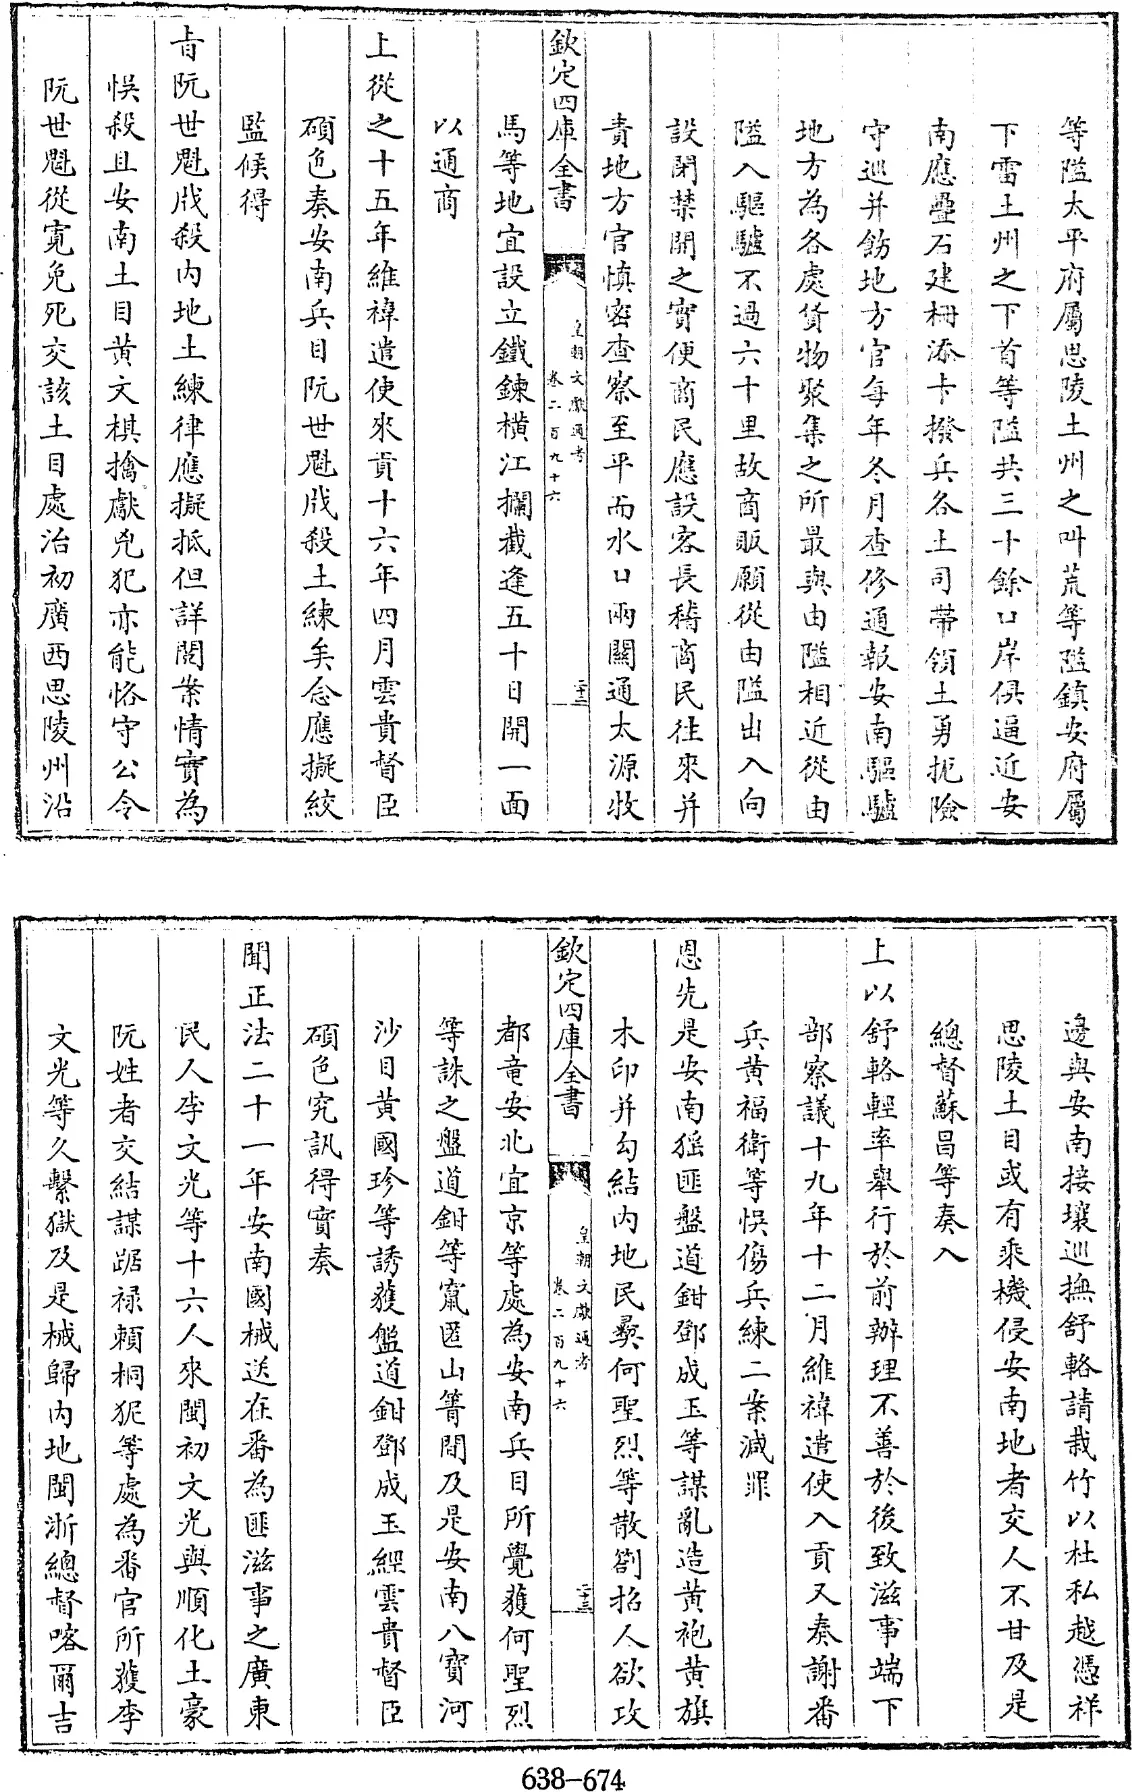 等隘太平府屬思陵土州之叫荒等隘鎮安府屬
下雷土州之下首等隘共三十餘口岸俱逼近安
南應疊石建柵添卡撥兵各土司帶領土勇扼險
守巡并飭地方官每年冬月查修通報安南驅驢
地方為各處貨物聚集之所最與由隘相近從由
隘入驅驢不過六十里故商販願從由隘出入向
設閉禁開之實便商民應設客長稽商民往來并
責地方官慎密查察至平而水口兩關通太源牧
欽定四庫全書
皇朝文獻通考
卷二百九十六
二十三
馬等地宜設立鐵鍊橫江攔截逢五十日開一面
以通商
上從之十五年維禕遣使來貢十六年四月雲貴督臣
碩色奏安南兵目阮世魁戕殺土練矣念應擬絞
監候得
旨阮世魁戕殺內地土練律應擬抵但詳閱案情實為
悞殺且安南土目黃文棋擒獻兇犯亦能恪守公令
阮世魁從寛免死交該土目處治初廣西思陵州沿
邊與安南接壤巡撫舒輅請栽竹以杜私越憑祥
思陵土目或有乘機侵安南地者交人不甘及是
總督蘇昌等奏入
上以舒輅輕率舉行於前辦理不善於後致滋事端下
部察議十九年十二月維禕遣使入貢又奏謝番
兵黃福衛等悞傷兵練二案減罪
恩先是安南猺匪盤道鉗鄧成玉等謀亂造黃袍黃旗
木印并勾結內地民彝何聖烈等散劄招人欲攻
欽定四庫全書
皇朝文獻通考
卷二百九十六
二十三
都竜安北宜京等處為安南兵目所覺獲何聖烈
等誅之盤道鉗等竄匿山箐間及是安南八寶河
沙目黃國珍等誘獲盤道鉗鄧成玉經雲貴督臣
碩色究訊得實奏
聞正法二十一年安南國械送在番為匪滋事之廣東
民人李文光等十六人來閩初文光與順化土豪
阮姓者交結謀踞祿賴桐狔等處為番官所獲李
文光等久繫獄及是械歸內地閩浙總督喀爾吉
638-674